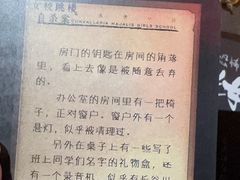 女校跳楼
自杀案
CONVALLARIA MAJALIS GIRLS SCHOOL
房门的钥匙在房间的角落
里，看上去像是被随意丢弃
的。
办公室的房间里有一把椅
子，正对窗户。窗户外有一个
悬灯，似乎被清理过。
另外在桌子上有一些写了
班上同学们名字的礼物盒，还
有一个录音机，似乎有长谷川